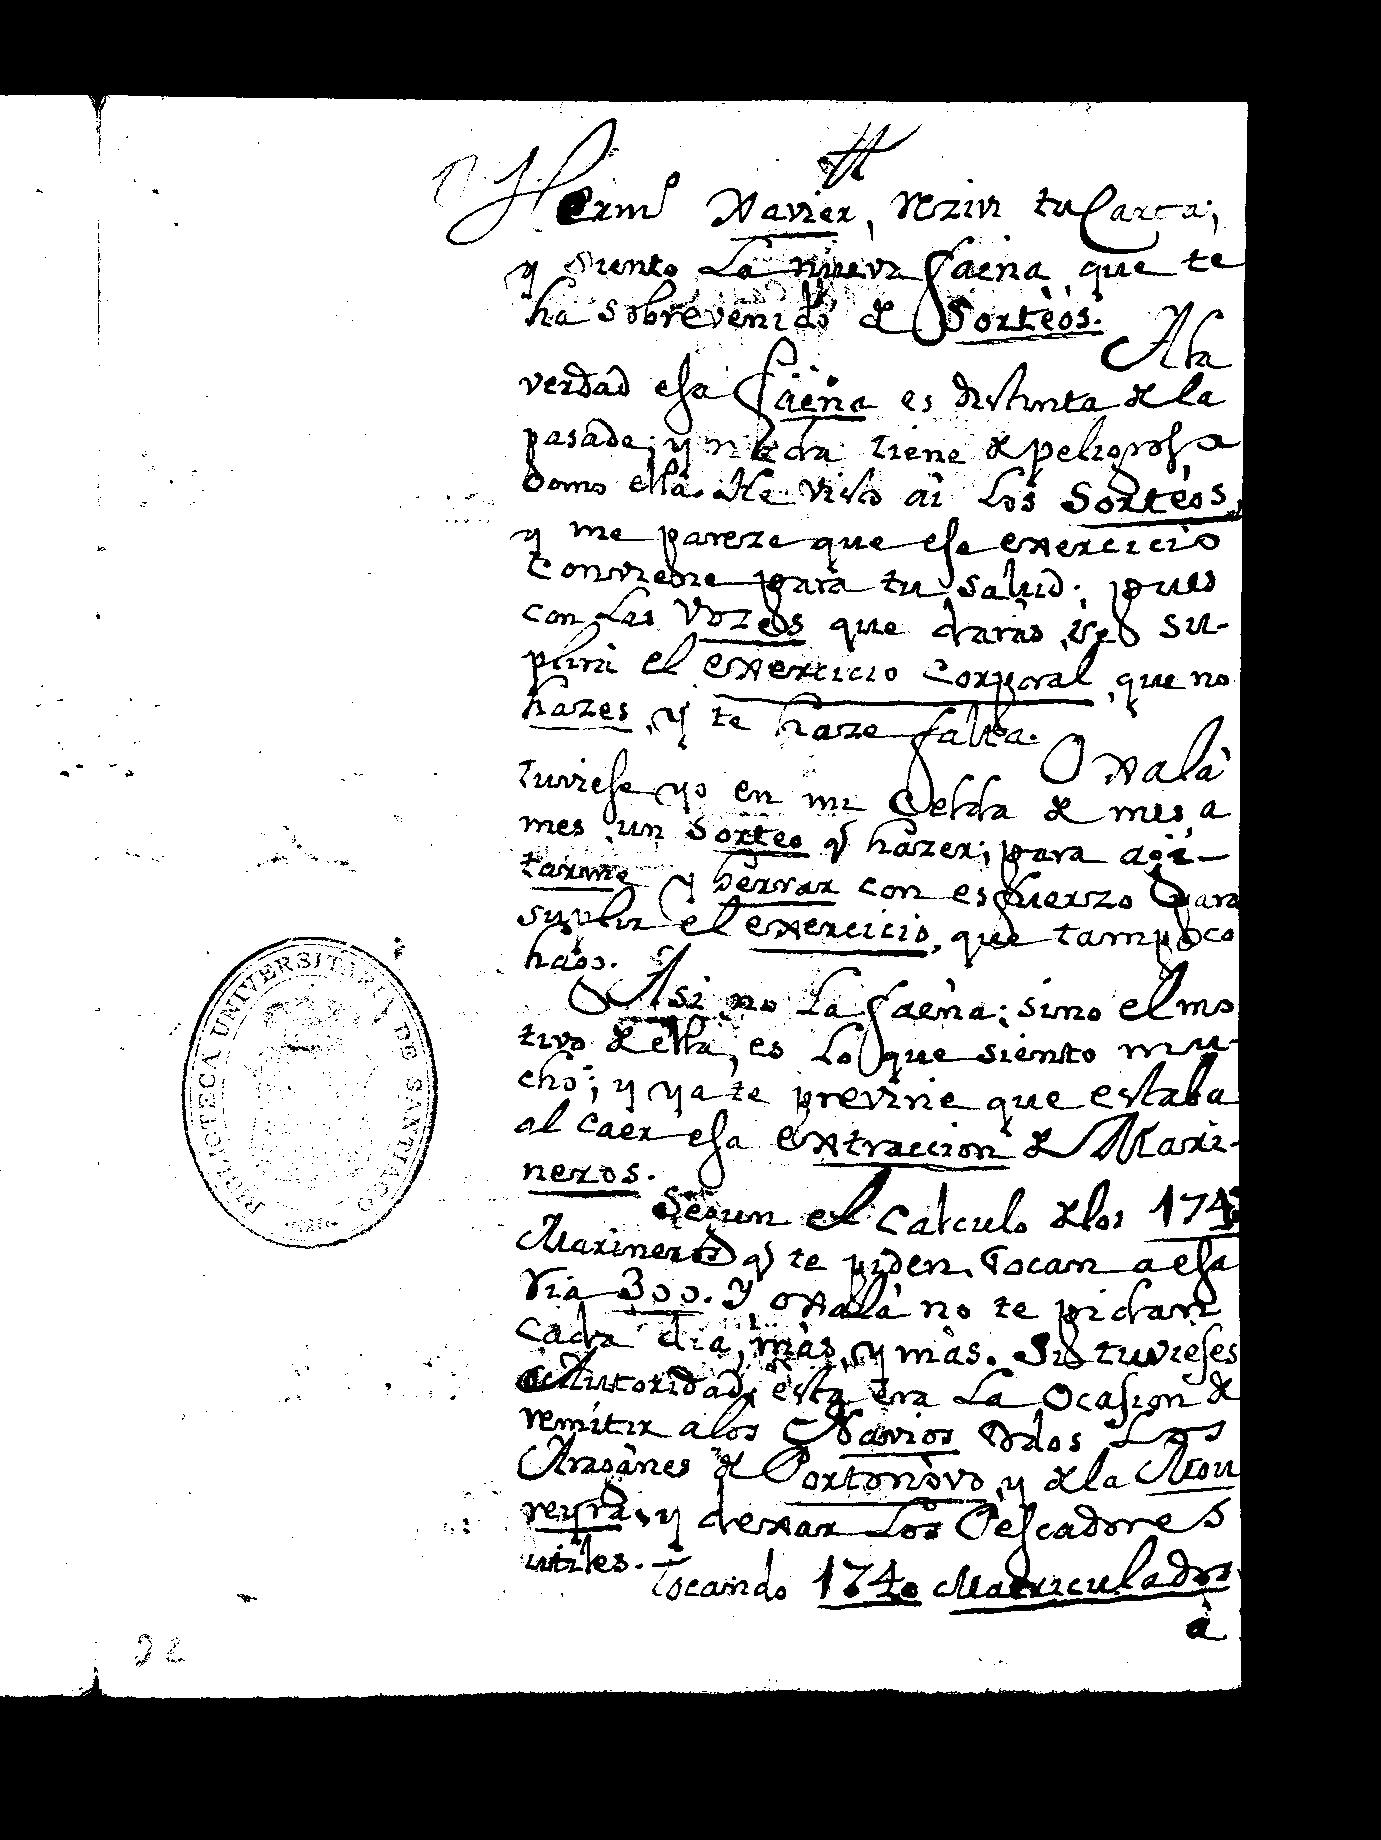 Hermº Xavier, rezivi tu Carta;
y siento la nueva faena, que te
ha sobrevenido de Sorteos.
A la
verdad esa faena es distinta de la
pasada; y nada tiene de peligrosa
como ella. He visto aì los Sorteos,
y me pareze que ese exercicio
conviene para tu salud; pues
con las vozes que daràs, se su-
plirà el exercicio corporal, que no
hazes, y te haze falta.
Oxalà
tuviese yo en mi Celda de mes, a
mes un Sorteo q hazer; para agi-
tarme y berrar con esfuerzo para
suplir el exercicio, que tampoco
hago.
Asi no la faena; sino el mo
tivo de ella, es lo que siento mu-
cho; y ya te previne que estaba
al caer esa extraccion de Mari-
neros.
Segun el Calculo de los 174
Marineros q te piden, Tocan a esa
Ria 300. Y oxalà no te pidan
cada dia, màs, y màs. Si tuvieses
Autoridad, esta era la Ocasion de
remitir a los Navios todos los
Aragànes de Portonòvo, y de la Mou
reyra, y dexar los Pescadores
utiles.
Tocando 1740 Matriculados
à
BIBLIOTECA UNIVERSITARIA DE SANTIAGO